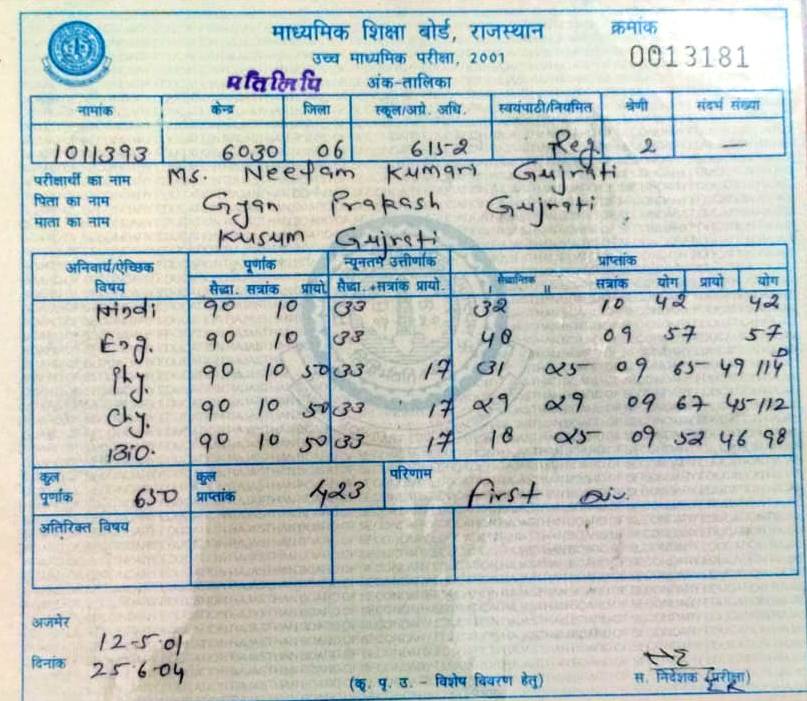 माध्यमिक शिक्षा बोर्ड, राजस्थान
क्रमांक
उच्च माध्यमिक परीक्षा, 2001
0013181
प्रतिलिपि अंक-तालिका
नामांक केन्द्र जिला स्कूल/अग्रे. अधि. स्वयंपाठी/नियमित श्रेणी संदर्भ संख्या
1011393 6030 06 615-2 Reg. 2 —
परीक्षार्थी का नाम Ms. Neelam Kumari Gujrati
पिता का नाम Gyan Prakash Gujrati
माता का नाम Kusum Gujrati
अनिवार्य/ऐच्छिक विषय पूर्णांक न्यूनतम उत्तीर्णांक प्राप्तांक
सैद्धा. सत्रांक प्रायो. सैद्धा. +सत्रांक प्रायो. सैद्धान्तिक II सत्रांक योग प्रायो योग
Hindi 90 10 33 32 10 42 42
Eng. 90 10 33 48 09 57 57
Phy. 90 10 50 33 17 31 25 09 65 49 114 D
Chy. 90 10 50 33 17 29 29 09 67 45 112
BIO. 90 10 50 33 17 18 25 09 52 46 98
कुल पूर्णांक 650 कुल प्राप्तांक 423 परिणाम First Div.
अतिरिक्त विषय
अजमेर
12-5-01
दिनांक 25-6-04
(कृ. पृ. उ. - विशेष विवरण हेतु)
स. निदेशक (परीक्षा)